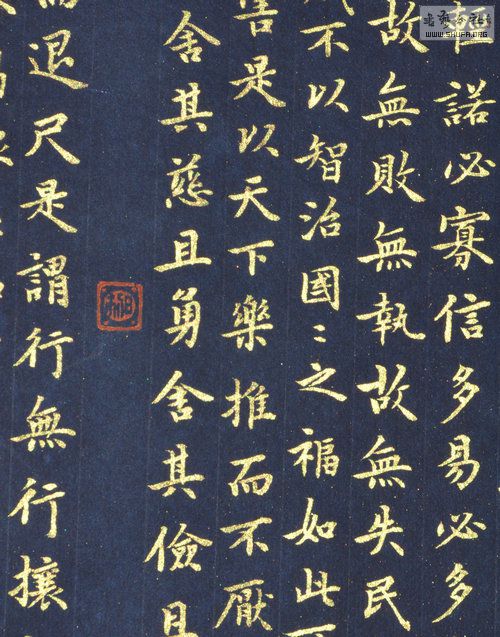 諾必寡信多易必多
故無敗無執故無失民
不以智治國〻之福如此
善是以天下樂推而不厭
舍其慈且勇舍其儉且
而退尺是謂行無行攘
WWW.SHUFA.ORG